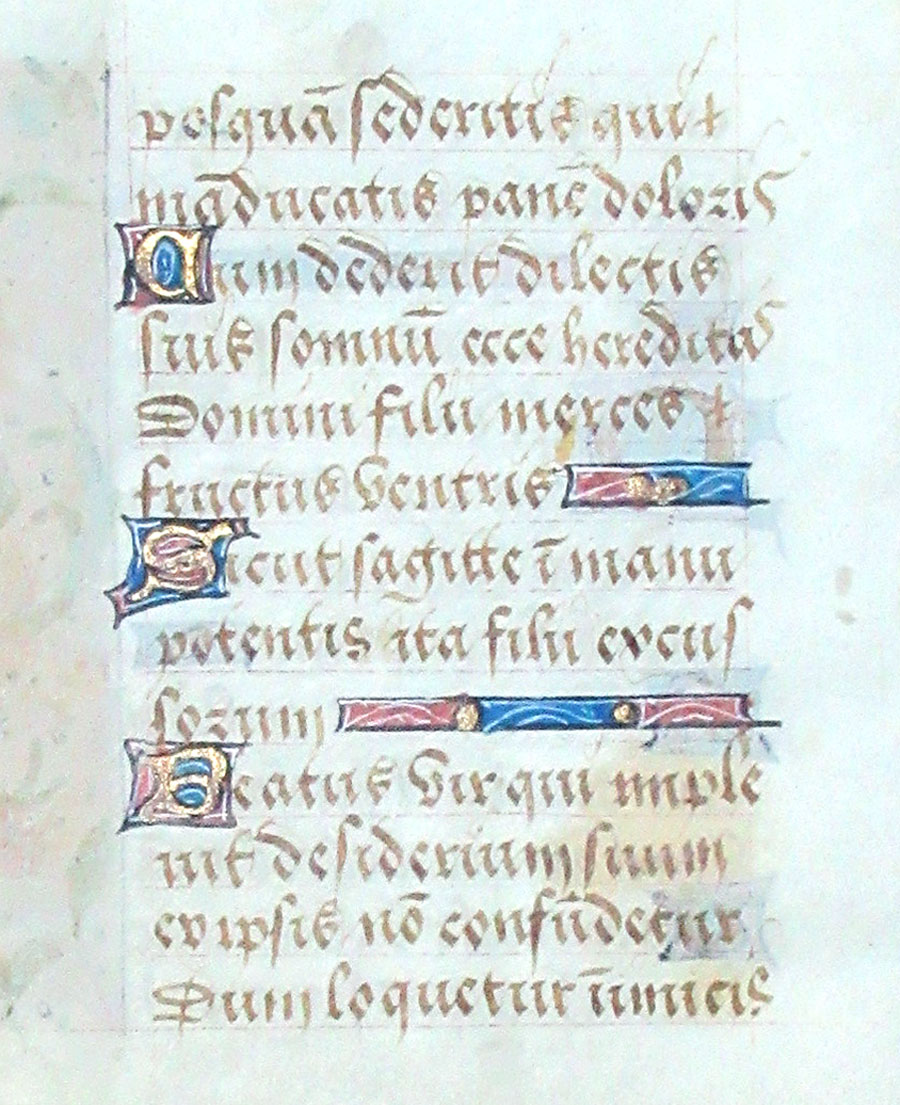 posquā sederitis qui
māducatis panē doloris
Cum dederit dilectis
suis somnū ecce hereditas
Domini filii merces
fructus ventris
Sicut sagitte ī manu
potentis ita filii excus
sorum
Beatus vir qui imple
uit desiderium suum
ex ipsis nō confūdetur
Dum loquetur īimicis